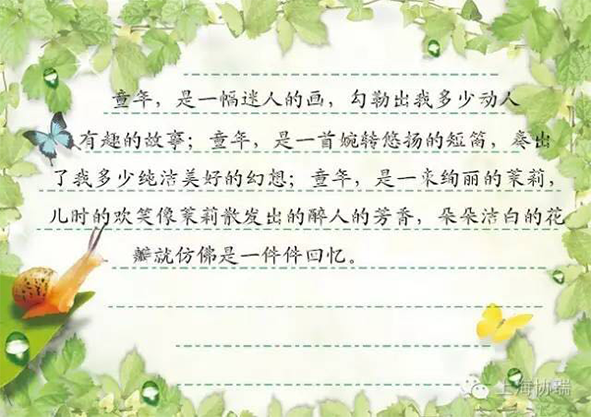 童年，是一幅迷人的画，勾勒出我多少动人
有趣的故事；童年，是一首婉转悠扬的短笛，奏出
了我多少纯洁美好的幻想；童年，是一朵绚丽的茉莉，
儿时的欢笑像茉莉散发出的醉人的芳香，朵朵洁白的花
瓣就仿佛是一件件回忆。
上海协瑞